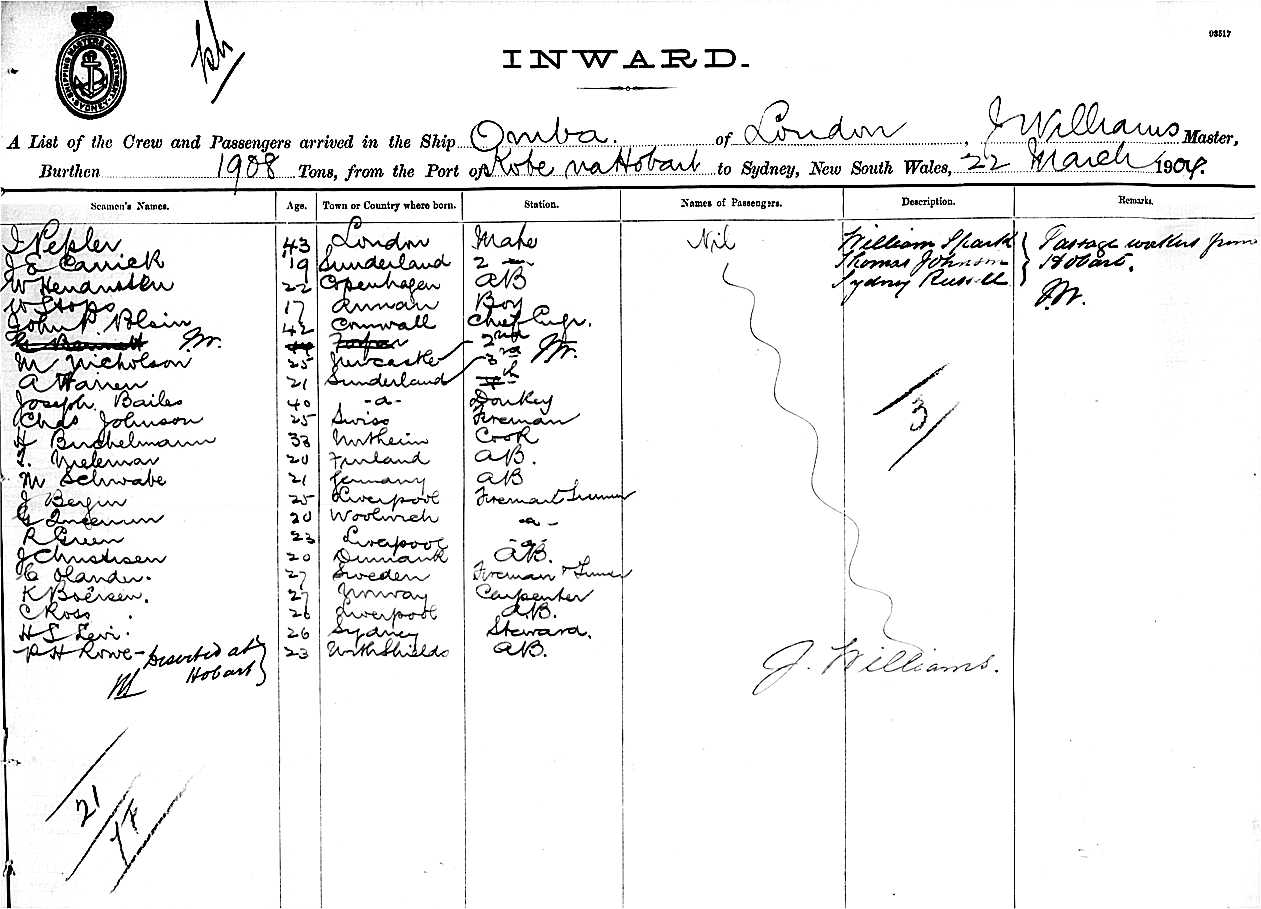 03517
INWARD.
SHIPPING MASTERS DEPARTMENT SYDNEY
A List of the Crew and Passengers arrived in the Ship Omba. of London, J Williams Master,
Burthen 1908 Tons, from the Port of Kobe via Hobart to Sydney, New South Wales, 22 March 1904.
Seamen's Names. Age. Town or Country where born. Station. Names of Passengers. Description. Remarks.
J Pepler 43 London Mate Nil William Spark Passage workers from
J E Carrick 19 Sunderland 2 — Thomas Johnson Hobart.
W 22 Copenhagen AB Sydney Russell J.W.
W Stops 17 Annan Boy
John P. Blain 42 Cornwall Chief Engr.
G Bennett J.W. Forfar 2nd
M Nicholson 25 Newcastle 3rd J.W.
A Warren 21 Sunderland 4th
Joseph Bailes 40 -a- Donkey
Chas Johnson 25 Swiss Fireman
H Buchelmann 33 Cook
20 Finland AB.
M Schwabe 21 Germany AB
J Bergin 25 Liverpool Fireman & Trimmer
20 Woolwich -a-
R Green 23 Liverpool -a-
J Christisen 20 Denmark AB.
C Olander. 27 Sweden Fireman & Trimmer
K Boërsen. 27 Norway Carpenter
C Ross. 26 Liverpool A.B.
H L Levi. 26 Sydney Steward.
P H Rowe - Deserted at 23 Nth Shields AB.
Hobart
3
J. Williams.
21